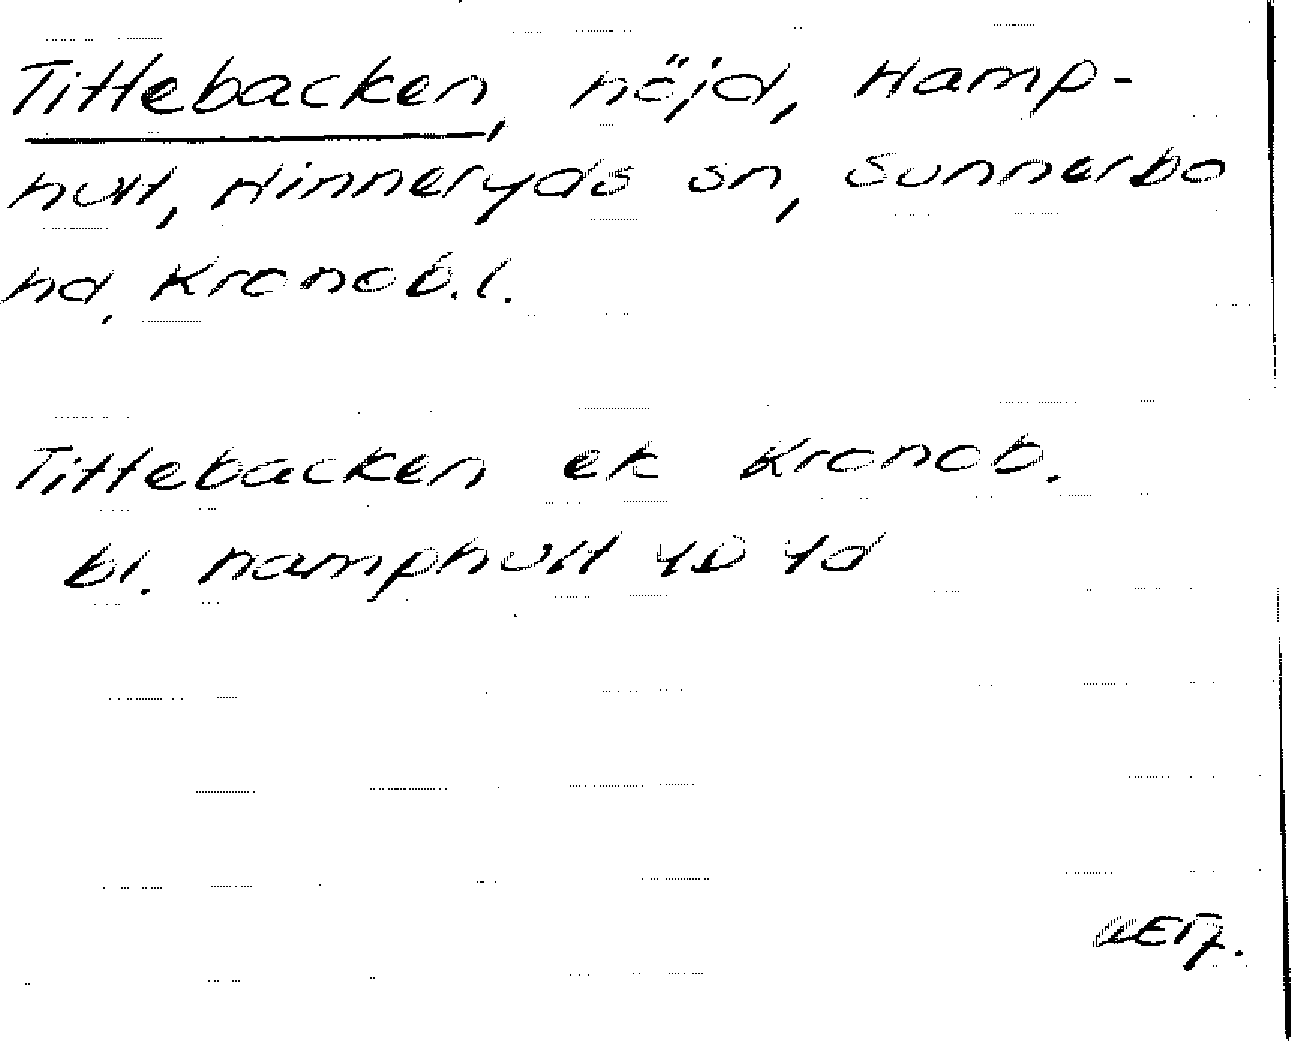 Tittebacken, höjd, Hamp-
hult, Hinneryds sn, Sunnerbo
hd, Kronob.l.
Tittebacken ek Kronob.
bl. Hamphult 4D 4d